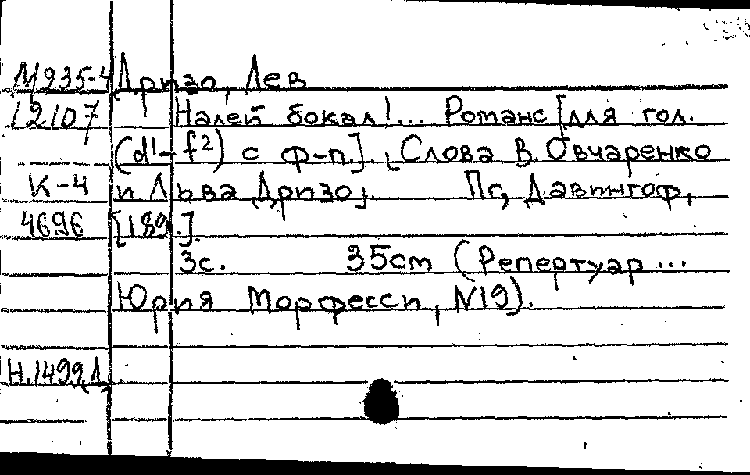 М935-4 Дризо, Лев
12107 Налей бокал!... Романс [для гол.
(d¹-f²) с ф-п.]. [Слова В. Овчаренко
К-4 и Льва Дризо]. Пг, Давингоф,
4696 [189.].
3с. 35см (Репертуар...
Юрия Морфесси, N19).
Н.1499